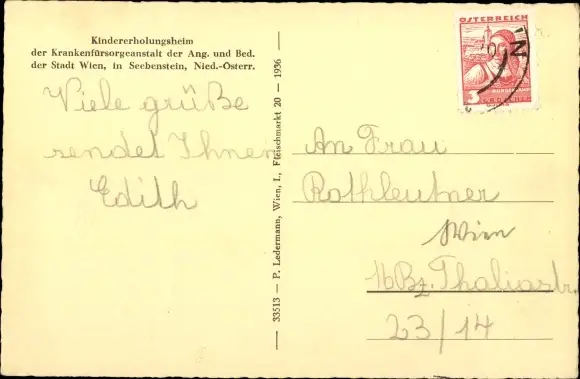 Kindererholungsheim
der Krankenfürsorgeanstalt der Ang. und Bed.
der Stadt Wien, in Seebenstein, Nied.-Österr.
Viele grüße
sendet Ihnen
Edith
33513 — P. Ledermann, Wien, I., Fleischmarkt 20 — 1936
ÖSTERREICH
3
An Frau
Rothleutner
Wien
16 Bz. Thaliastr.
23/14